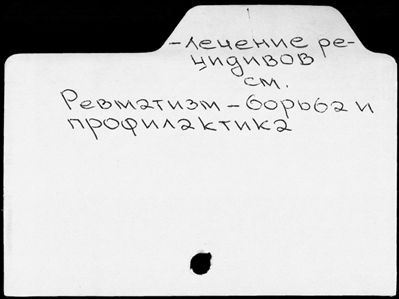 -лечение ре-
цидивов
см.
Ревматизм - борьба и
профилактика